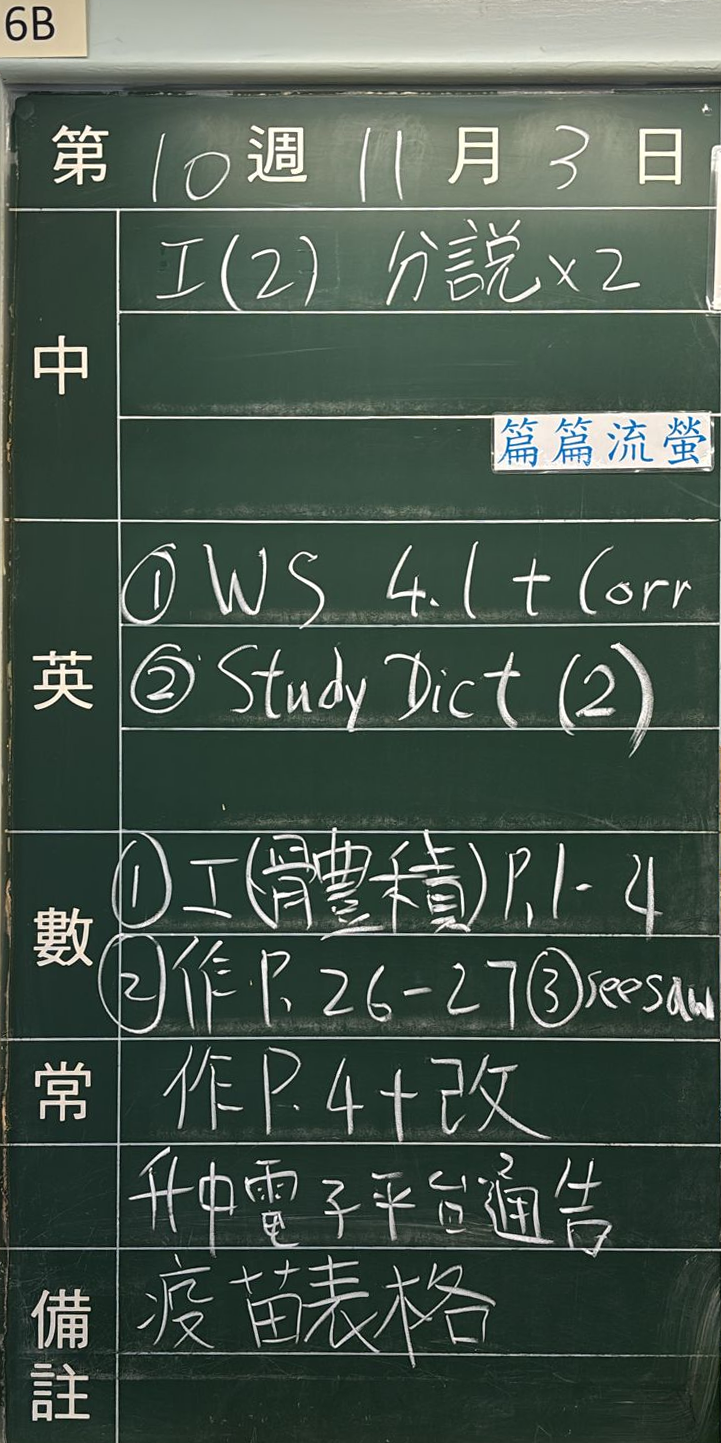 6B
第 10 週 11 月 3 日
中
工(2) 分説×2
篇篇流螢
英
① WS 4.1 + Corr
② Study Dict (2)
數
① 工(體積) P.1-4
② 作 P. 26-27 ③ seesaw
常
作 P. 4 + 改
升中電子平台通告
備註
疫苗表格